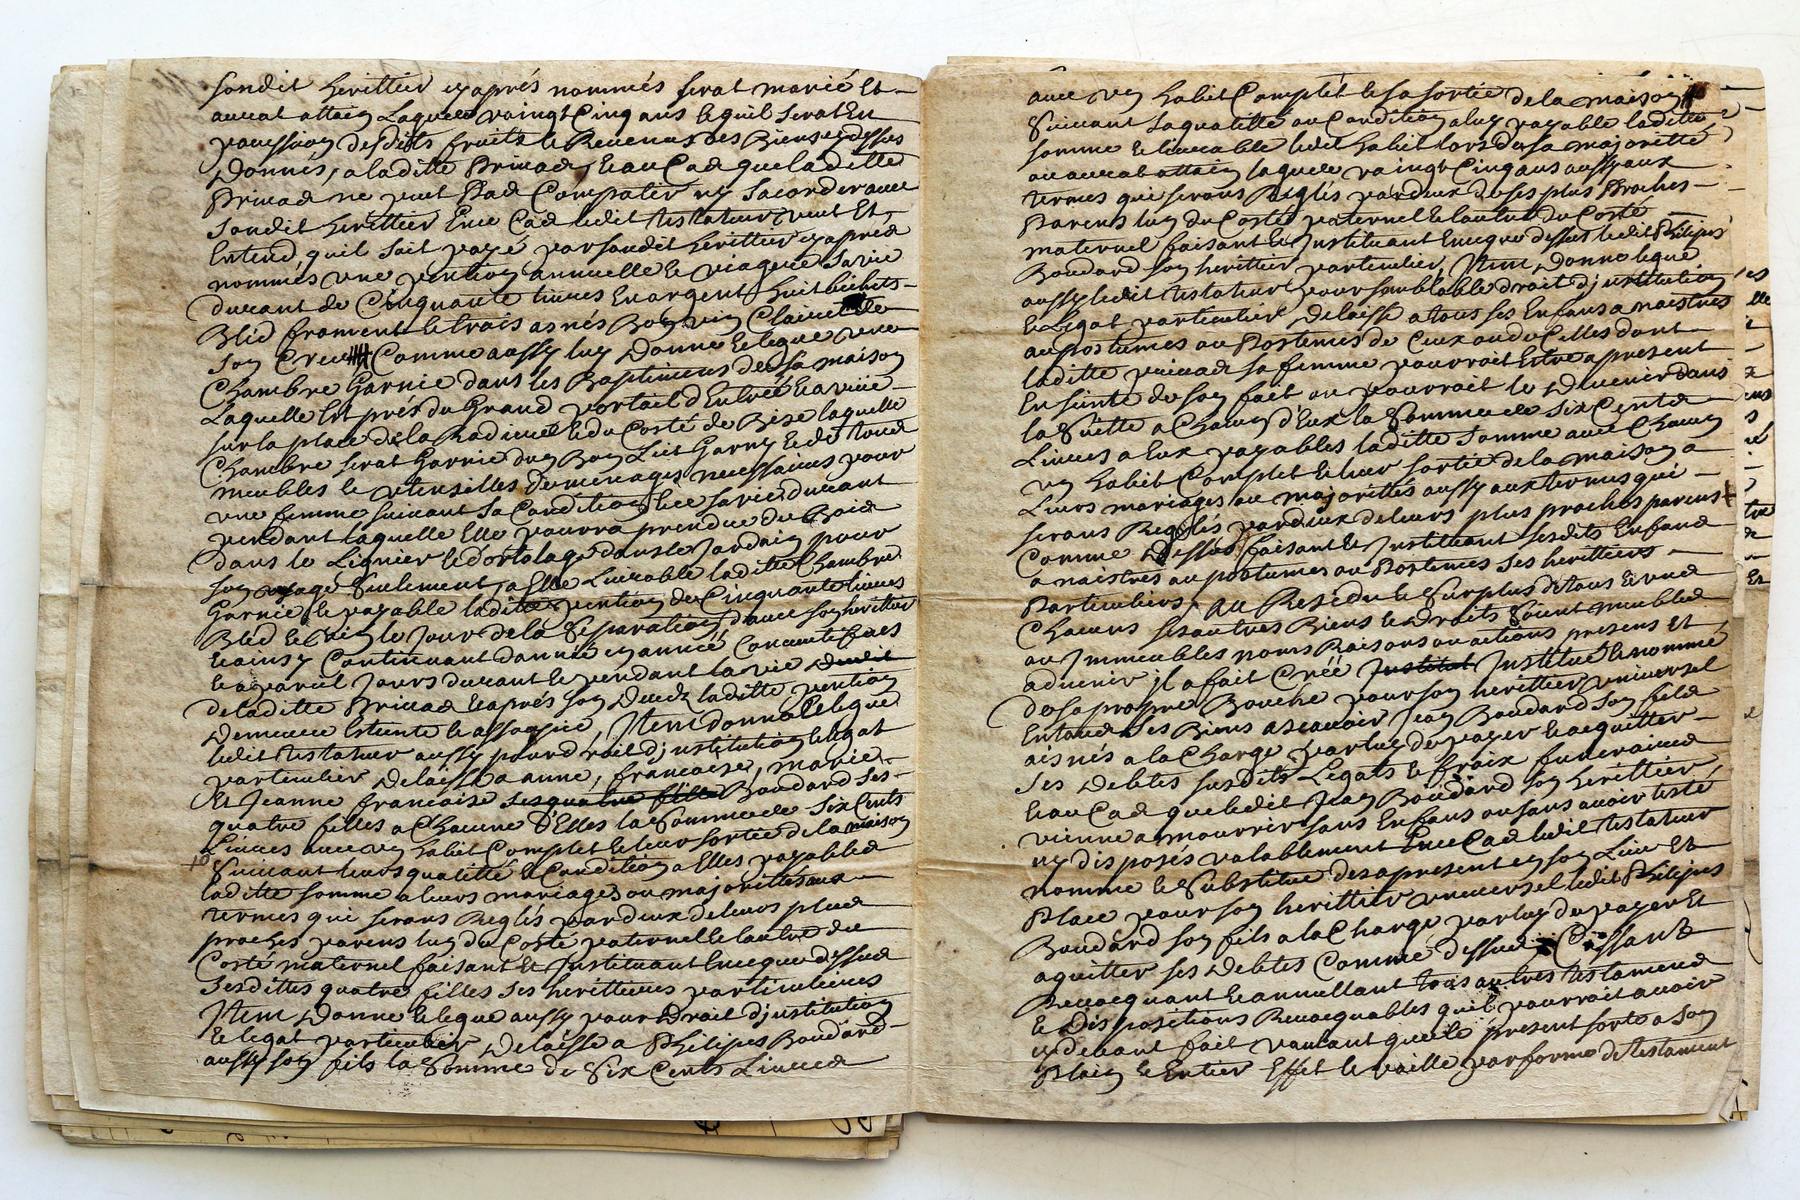 sondit heritier cy aprés nommés serat marié Et
aurat attain Laquee vaingt Cinq ans lequil serat En
possession desdits fruits le Revenus des Biens cydessus
Donnés, a laditte Privad, Eau Cas que laditte
Privad ne peut Pas Compatir ny sacorder avec
sondit heritier Ence Cas ledit testateur veut Et
Entend, quil soit payé par sondit heritier cy aprés
nommés une pention annuelle le viagere sa vie
durant de Cinquante livres En argent huit bichets
Bléd froment le trois asnés Bon vin Clairet de
son Creu Comme aussy luy Donne Elegue une
Chambre Garnie dans les Baptimens de sa maison
Laquelle Est prés du Grand portail d'Entrée la viie
sur la place de la Radieue le du Costé de Bize laquelle
Chambre serat Garnie dun Bon Lict Garny le de tous
meubles le utensilles de menages necessaires pour
une femme suivant sa Condition lce sa vie durant
pendant laquelle Elle pourra prendre du Bois
dans le Lignier le dortolage dans le Jardain pour
son usage seulement, a Elle Livrable laditte Chambre
Garnie le payable laditte pention de Cinquante livres
Bléd le vin le Jour de la separation d'avec son heritier
le ainsy Continuant dannée en année Concecutifves
le a pareil Jours durant le pendant la vie
de laditte Privad le aprés son Decéz laditte pention
Demeure Eteinte le assoupie, Item donne Elegue
ledit testateur aussy pour droit d'justitution le legat
particulier Delaissé a anne, francoise, marie
Et Jeanne francoise ses quatre filles Boudard ses
quatre filles a Chacune D'Elles la somme de six Cents
Livres avec un habit Complet le leur sortie de la maison
Suivant leurs qualitté le Condition a Elles payables
laditte somme a leurs mariages ou majorittés aux
termes qui serons Reglés par deux de leurs plus
proches parens lun du Costé paternel le lautre du
Costé maternel faisant le Justituant Ence que dessus
sesdittes quatre filles ses heritieres particulieres
Item Donne le legue aussy pour Droit d'justitution
le legat particulier Delaissé a Philipes Boudard
aussy son fils la somme de Six Cents Livres
avec un habit Complet le sa sortie de la maison
Suivant sa qualitté ou Condition a luy payable laditte
somme le livrable ledit habit lors de sa majoritté
ou aurat attain laquee vaingt Cinq ans aussy aux
termes qui serons Reglés par deux de ses plus Proches
Parens lun du Costé paternel le lautre du Costé
maternel faisant le Justituant Ence que dessus ledit Philipes
Boudard son heritier particulier, Item, Donne legue
aussy ledit testateur pour semblable droit d'justitution
le Legat particulier Delaissé a tous ses Enfans a naistres
ou postumes ou Postemes de Ceux ou de Celles dont
laditte privad sa femme pourrait Estre a present
Enseinte de son fait ou pourrait le Devenir dans
la suitte a Chacun d'Eux la Somme de Six Cents
Livres a Eux payables laditte somme avec Chacun
un habit Complet le leur sortie de la maison a
Leurs mariages ou majorittés aussy aux termes qui
serons Reglés par deux de leurs plus proches parens
Comme Dessus faisant le Justituant sesdits Enfans
a naistres ou postumes ou Postemes ses heritiers
Particuliers, au Residu le Surplus de tous le uns
Chacuns ses autres Biens le Droits Soient meubles
ou Jmmeubles noms Raisons ou actions presens Et
advenir jl a fait Créé Justitué Justitué le nommé
de sa propre Bouche pour son heritier universel
En tous ses Biens a scavoir Jean Boudard son fils
aisnés a la Charge par luy de payer le acquitter
Ses Debtes susdits Legats le fraix funeraires
Eau Cas que ledit Jean Boudard son heritier
vienne a mourrir sans Enfans ou sans avoir testé
ny disposés valablement Ence Cas ledit testateur
nomme le Substitue des apresent en son Lieu Et
Place pour son heritier universel ledit Philipes
Boudard son fils a la Charge par luy de payer Et
aquitter ses Debtes Comme dessus Cassant
Revocquant le annullant tous autres testamens
le Dispositions Revocquables quil pourrait avoir
cy devant fait voulant que le present sorte a son
Plain le Entier Effet le vaille par forme de testament